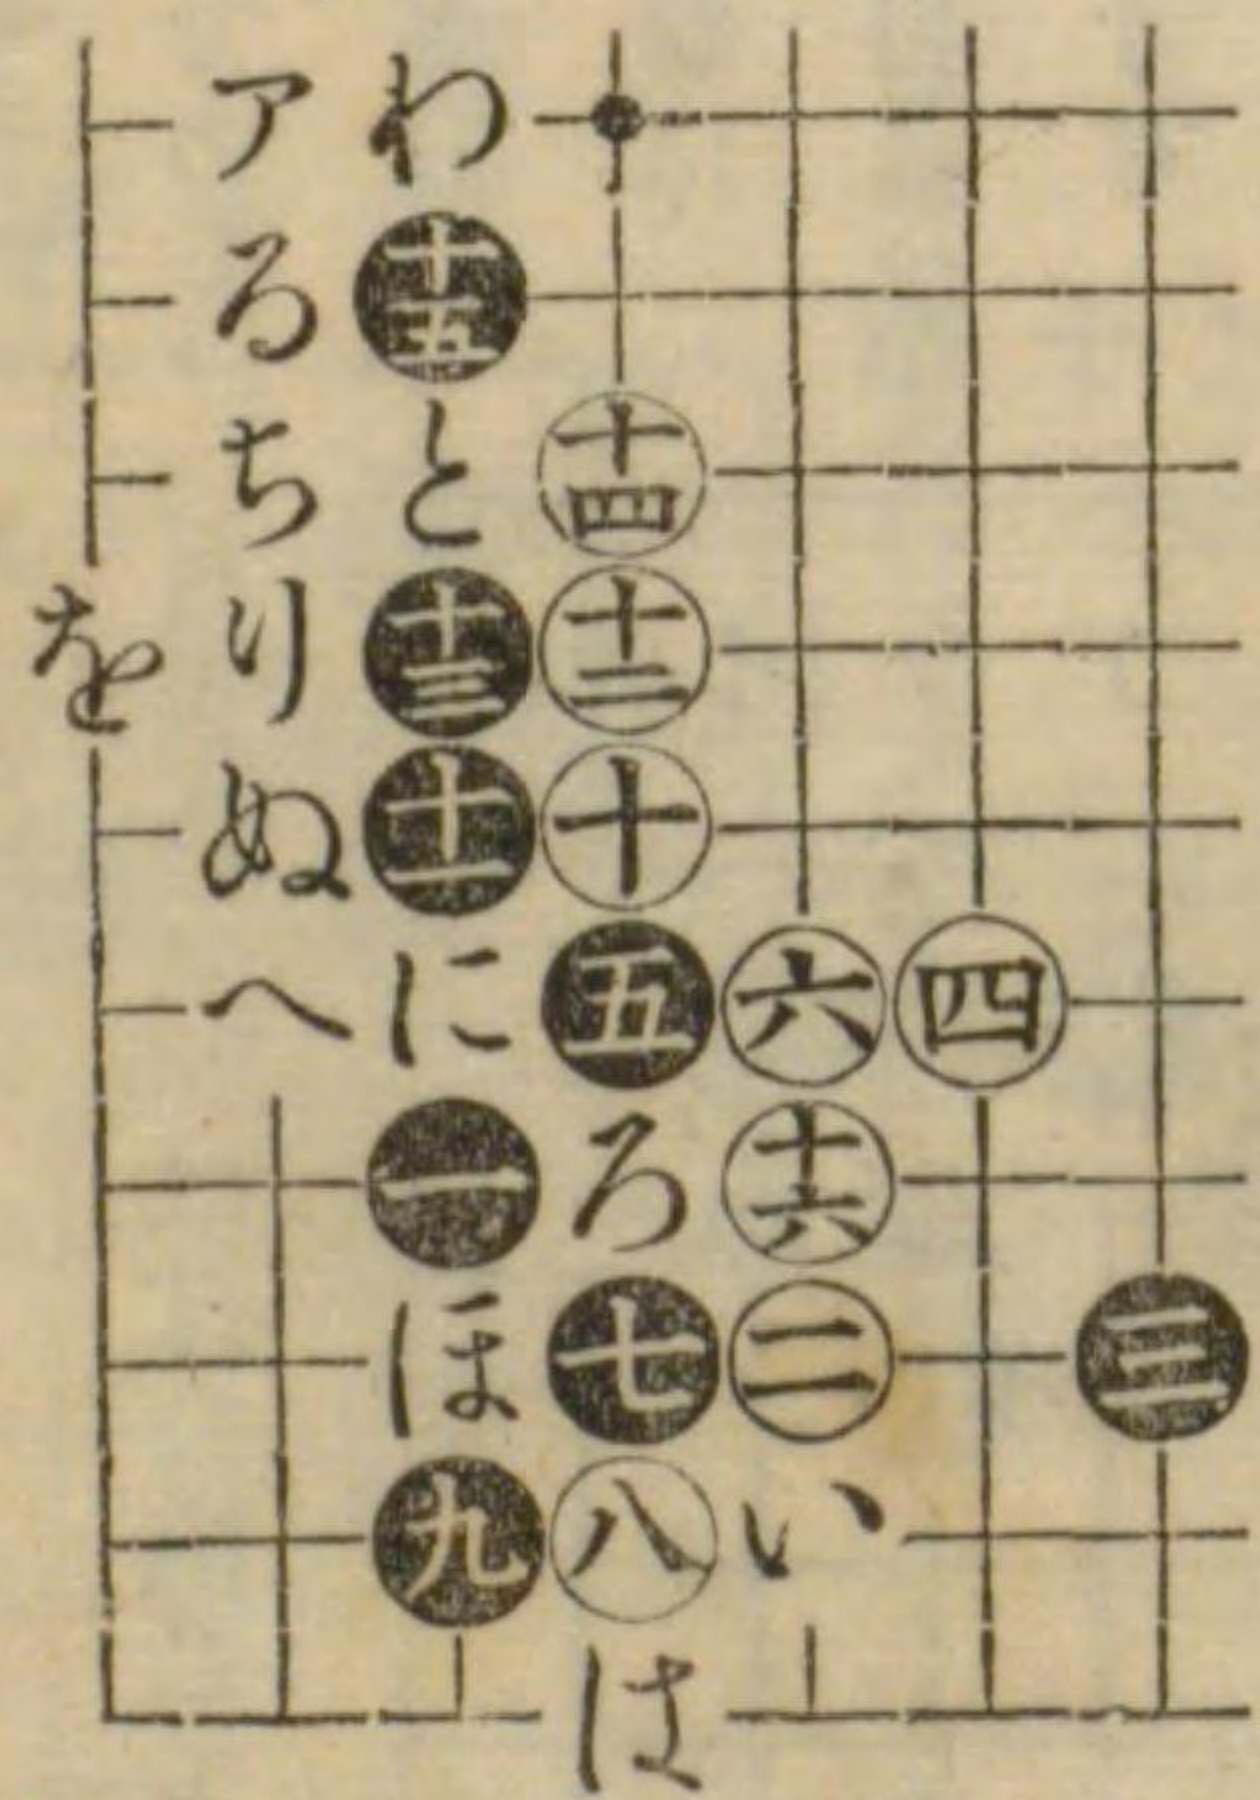 ア わ
る 十五
ち と 十四
を り 十三 十二
ぬ 十一 十
へ に 五 六 四
一 ろ 十六
ほ 七 二 三
九 八 い
は